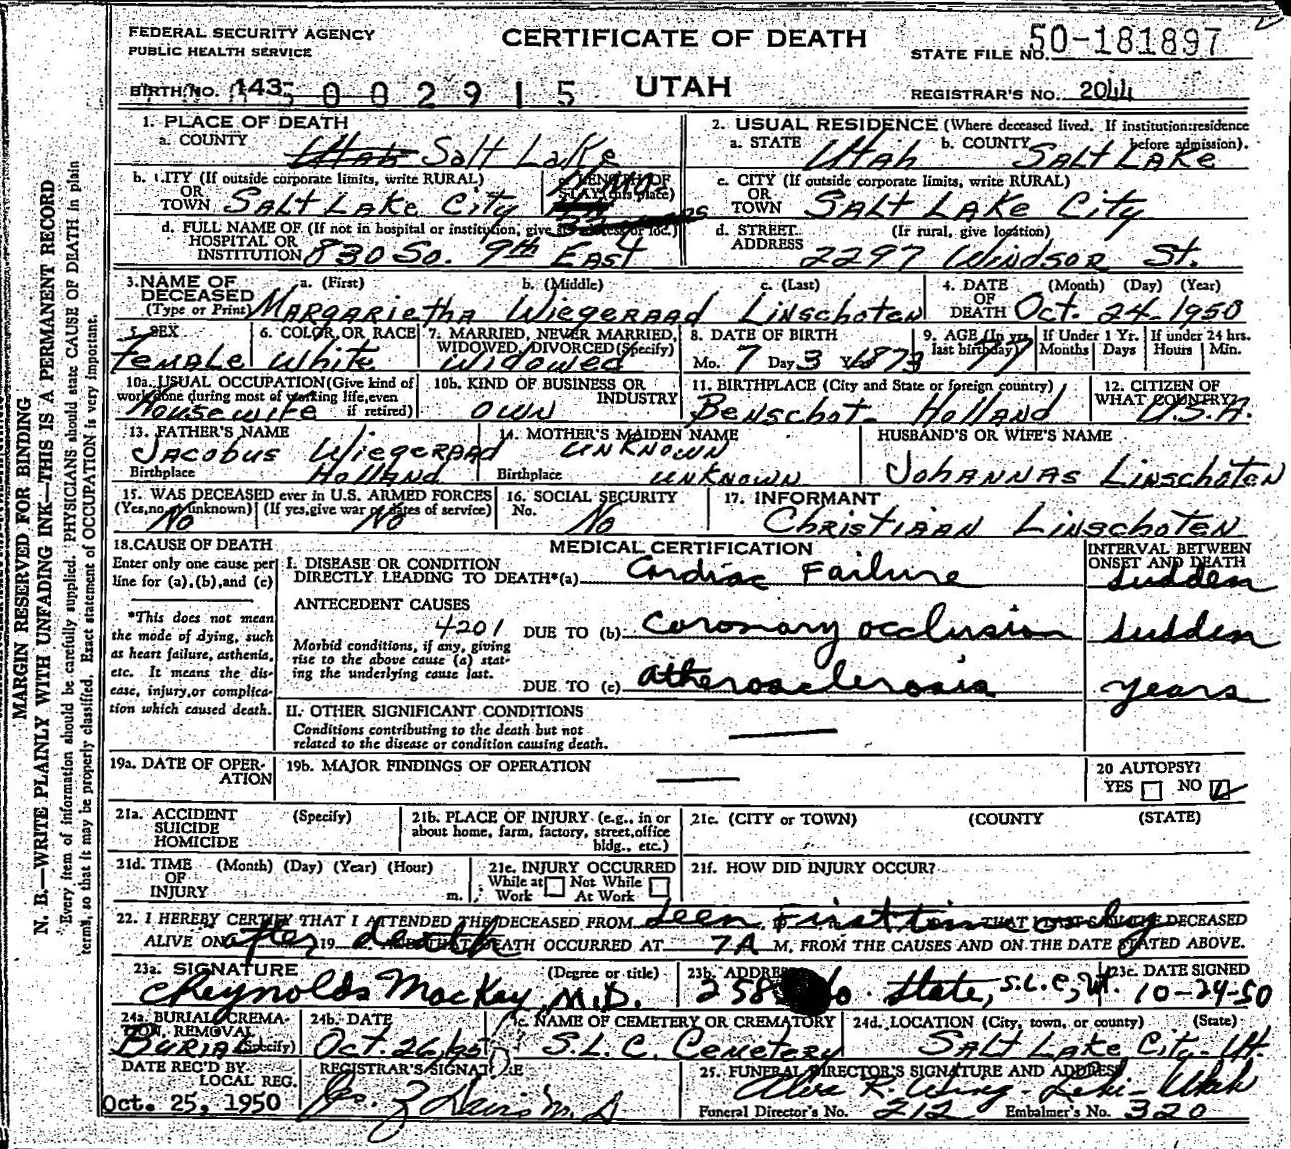 FEDERAL SECURITY AGENCY
PUBLIC HEALTH SERVICE
CERTIFICATE OF DEATH
STATE FILE NO. 50-181897
BIRTH NO. 143 5 0 0 2 9 1 5
UTAH
REGISTRAR'S NO. 2044
1. PLACE OF DEATH
a. COUNTY Utah Salt Lake
2. USUAL RESIDENCE (Where deceased lived. If institution:residence before admission).
a. STATE Utah b. COUNTY Salt Lake
b. CITY (If outside corporate limits, write RURAL) OR TOWN Salt Lake City
c. LENGTH OF STAY (this place)
c. CITY (If outside corporate limits, write RURAL) OR TOWN Salt Lake City
d. FULL NAME OF (If not in hospital or institution, give st. address or loc.) HOSPITAL OR INSTITUTION 830 So. 9th East
d. STREET ADDRESS (If rural, give location) 2297 Windsor St.
3. NAME OF DECEASED (Type or Print) a. (First) b. (Middle) c. (Last)
Margarietha Wiegeraad Linschoten
4. DATE OF DEATH (Month) (Day) (Year) Oct. 24-1950
5. SEX Female
6. COLOR OR RACE White
7. MARRIED, NEVER MARRIED, WIDOWED, DIVORCED (Specify) Widowed
8. DATE OF BIRTH Mo. 7 Day 3 Yr. 1873
9. AGE (In yrs. last birthday) 77
If Under 1 Yr. Months Days
If under 24 hrs. Hours Min.
10a. USUAL OCCUPATION (Give kind of work done during most of working life, even if retired) Housewife
10b. KIND OF BUSINESS OR INDUSTRY Own
11. BIRTHPLACE (City and State or foreign country) Benschot- Holland
12. CITIZEN OF WHAT COUNTRY? U.S.A.
13. FATHER'S NAME Jacobus Wiegeraad
Birthplace Holland
14. MOTHER'S MAIDEN NAME Unknown
Birthplace Unknown
HUSBAND'S OR WIFE'S NAME
Johannas Linschoten
15. WAS DECEASED ever in U.S. ARMED FORCES
(Yes, no, or unknown) No (If yes, give war or dates of service) No
16. SOCIAL SECURITY No. No
17. INFORMANT
Christiaan Linschoten
18. CAUSE OF DEATH
Enter only one cause per line for (a), (b), and (c)
*This does not mean the mode of dying, such as heart failure, asthenia, etc. It means the disease, injury, or complication which caused death.
MEDICAL CERTIFICATION
INTERVAL BETWEEN ONSET AND DEATH
I. DISEASE OR CONDITION DIRECTLY LEADING TO DEATH*(a) Cardiac Failure sudden
ANTECEDENT CAUSES
4201 DUE TO (b) Coronary occlusion sudden
Morbid conditions, if any, giving rise to the above cause (a) stating the underlying cause last.
DUE TO (c) atherosclerosis years
II. OTHER SIGNIFICANT CONDITIONS
Conditions contributing to the death but not related to the disease or condition causing death.
19a. DATE OF OPERATION
19b. MAJOR FINDINGS OF OPERATION
20 AUTOPSY? YES NO
21a. ACCIDENT SUICIDE HOMICIDE (Specify)
21b. PLACE OF INJURY (e.g., in or about home, farm, factory, street, office bldg., etc.)
21c. (CITY or TOWN) (COUNTY) (STATE)
21d. TIME OF INJURY (Month) (Day) (Year) (Hour) m.
21e. INJURY OCCURRED While at Work Not While At Work
21f. HOW DID INJURY OCCUR?
22. I HEREBY CERTIFY THAT I ATTENDED THE DECEASED FROM seen First time only DECEASED
ALIVE ON after 19 death DEATH OCCURRED AT 7 A M, FROM THE CAUSES AND ON THE DATE STATED ABOVE.
23a. SIGNATURE (Degree or title) Reynolds MacKay M.D.
23b. ADDRESS 258 So. State, S.L.C, Ut.
23c. DATE SIGNED 10-24-50
24a. BURIAL, CREMATION, REMOVAL (Specify) Burial
24b. DATE Oct. 26
24c. NAME OF CEMETERY OR CREMATORY S.L.C. Cemetery
24d. LOCATION (City, town, or county) (State) Salt Lake City-Ut.
DATE REC'D BY LOCAL REG. Oct. 25, 1950
REGISTRAR'S SIGNATURE
25. FUNERAL DIRECTOR'S SIGNATURE AND ADDRESS R. Wing - Lehi - Utah
Funeral Director's No. 212 Embalmer's No. 320
MARGIN RESERVED FOR BINDING
N. B.—WRITE PLAINLY WITH UNFADING INK—THIS IS A PERMANENT RECORD
Every item of information should be carefully supplied. PHYSICIANS should state CAUSE OF DEATH in plain
terms, so that it may be properly classified. Exact statement of OCCUPATION is very important.